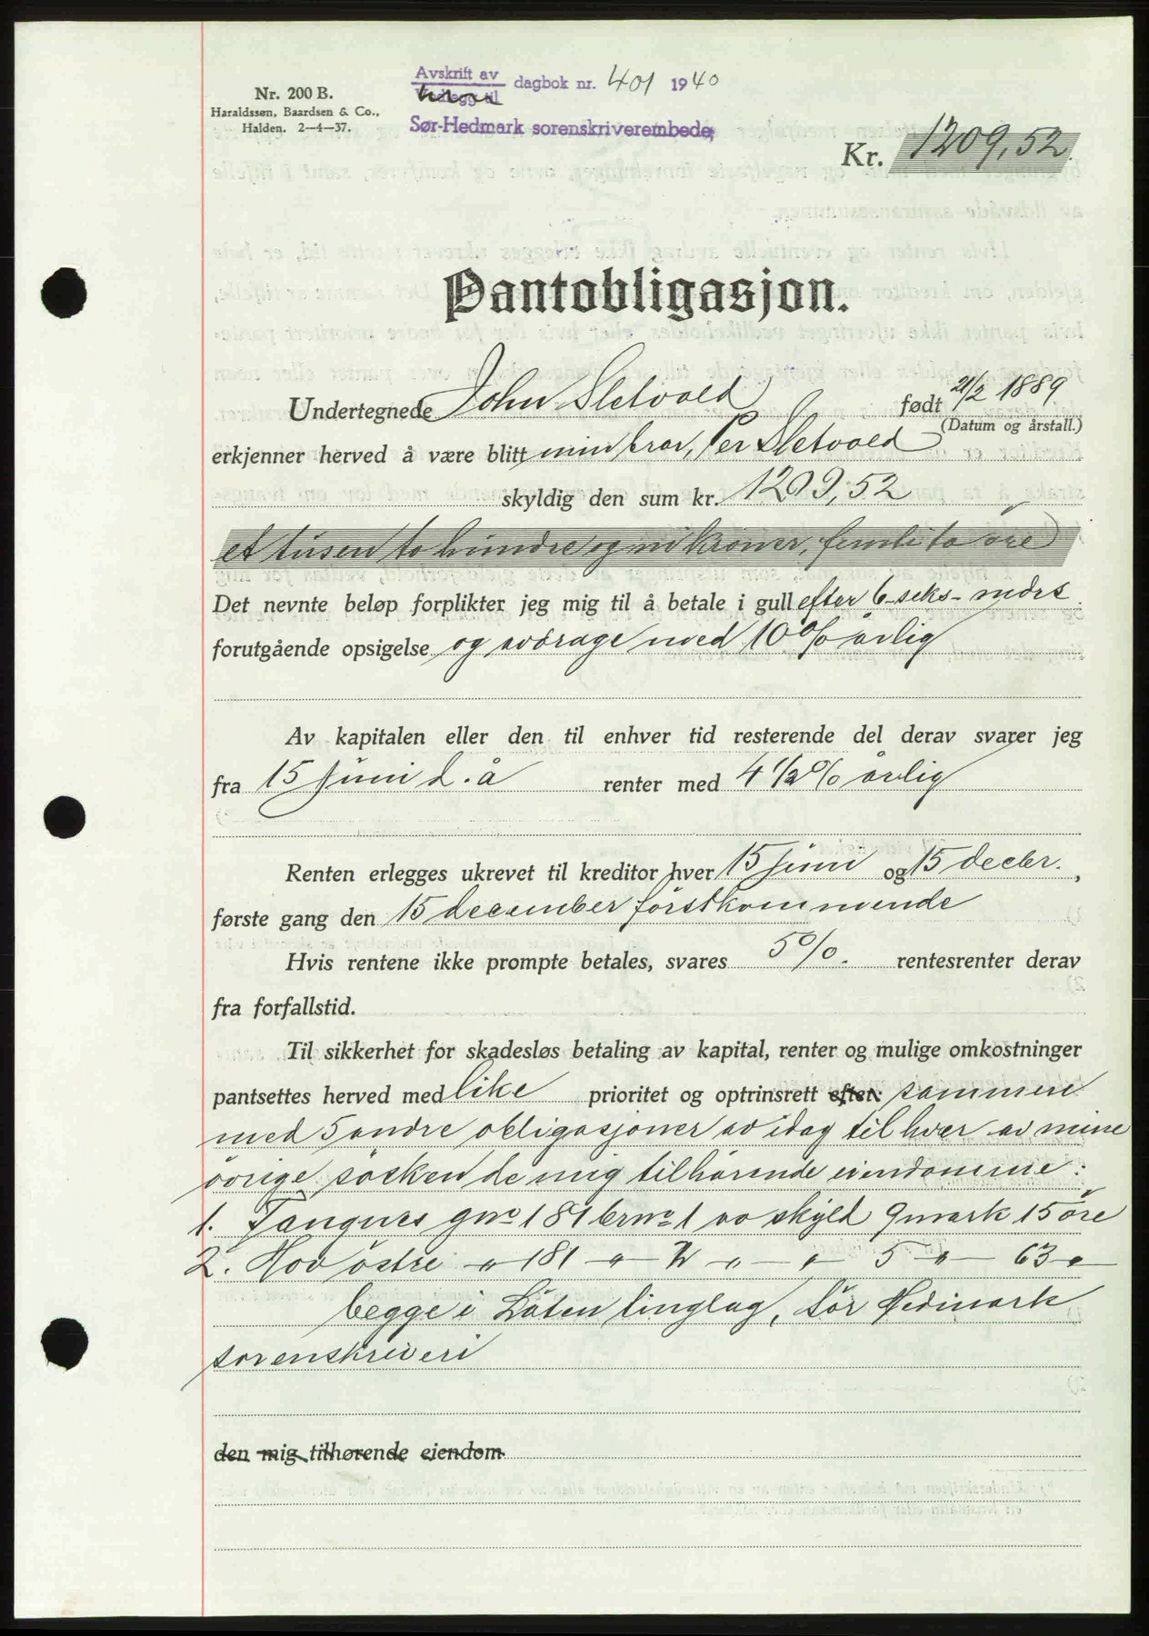 Nr. 200 B.
Haraldssen, Baardsen & Co.,
Halden. 2—4—37.
Avskrift av
Vedlegg til
dagbok nr. 401 1940
Sør-Hedmark sorenskriverembede
Kr. 1209,52
Pantobligasjon.
Undertegnede John Sletvold født 21/2 1889
(Datum og årstall.)
erkjenner herved å være blitt min bror, Per Sletvold
skyldig den sum kr. 1209,52
et tusen to hundre og ni kroner, femti to øre
Det nevnte beløp forplikter jeg mig til å betale i gull efter 6-seks- mdrs
forutgående opsigelse og avdrage med 10% årlig
Av kapitalen eller den til enhver tid resterende del derav svarer jeg
fra 15 juni d. å renter med 4 1/2 % årlig
Renten erlegges ukrevet til kreditor hver 15 juni og 15 decbr. ,
første gang den 15 december førstkommende
Hvis rentene ikke prompte betales, svares 5%. rentesrenter derav
fra forfallstid.
Til sikkerhet for skadesløs betaling av kapital, renter og mulige omkostninger
pantsettes herved med like prioritet og optrinsrett efter: sammen
med 5 andre obligasjoner av idag til hver av mine
øvrige søsken de mig tilhørende eiendomme:
1. Tangnes gno 181 brno 1 av skyld 9 mark 15 øre
2. Hov østre " 181 " 2 " " 5 " 63 "
begge i Løten tinglag, Sør Hedmark
sorenskriveri
den mig tilhørende eiendom